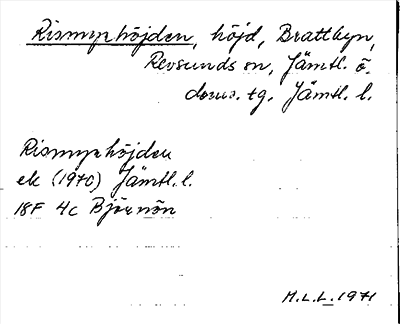 Rismyrhöjden, höjd, Brattbyn,
Revsunds sn, Jämtl. ö.
doms. tg. Jämtl. l.
Rismyrhöjden
ek (1970) Jämtl. l.
18F 4c Björnön
M.L.L. 1971